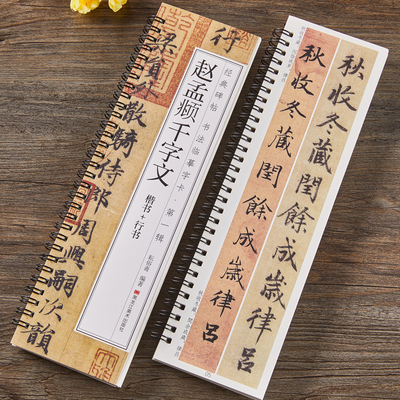 经典碑帖 书法临摹字卡·第一辑
赵孟頫千字文
楷书+行书
编著
黑龙江美术出版社
梁員外散騎侍郎周興嗣次韻
秋收冬藏閏餘成歲律呂
秋收冬藏閏餘成歲律呂